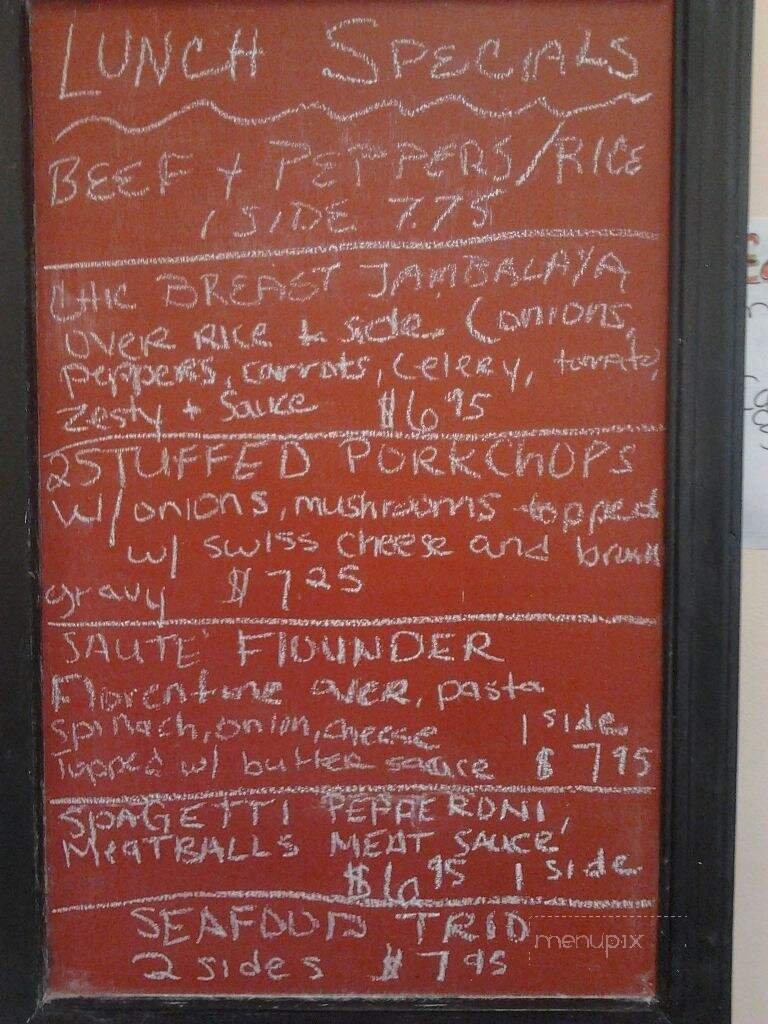 LUNCH SPECIALS
BEEF + PEPPERS/RICE
1 SIDE 7.75
CHIC BREAST JAMBALAYA
OVER RICE & side (onions,
peppers, carrots, celery, tomato,
zesty + sauce $6.95
2 STUFFED PORKCHOPS
w/onions, mushrooms topped
w/ swiss cheese and brown
gravy $7.25
SAUTE' FlOUNDER
Florentine over, pasta
spinach, onion, cheese 1 side
Topped w/ butter sauce $7.95
SPAGETTI PEPPERONI,
MEATBALLS MEAT SAUCE,
$6.95 1 side
SEAFOOD TRIO
2 sides $7.95
menupix